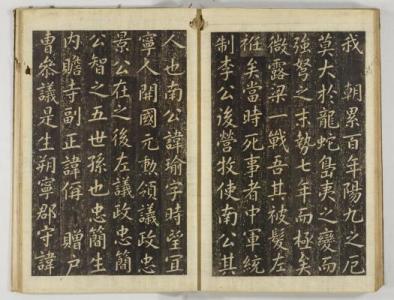 我 朝累百年陽九之厄
莫大於龍蛇島夷之變而
強弩之末勢七年而極矣
微露梁一戰吾其被髮左
袵矣當時死事者中軍統
制李公後營牧使南公其
人也南公諱瑜字時望宜
寧人開國元勳領議政忠
景公在之後左議政忠簡
公智之五世孫也忠簡生
內贍寺副正諱偁 贈戶
曹參議是生朔寧郡守諱